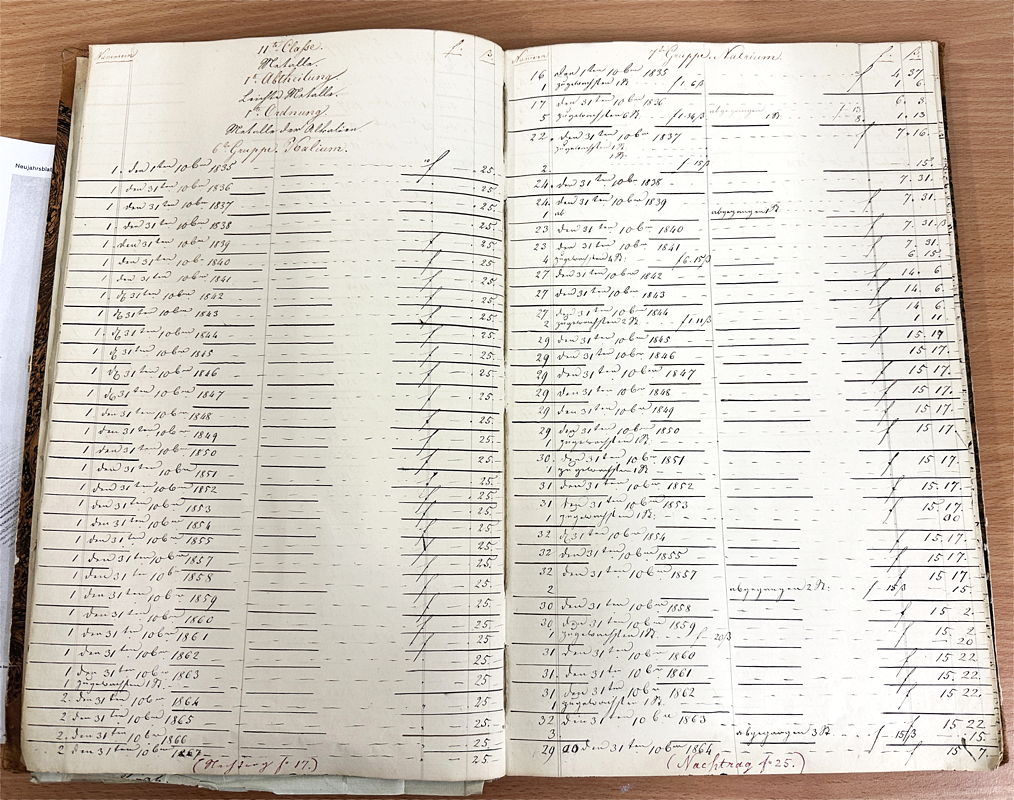 Neujahrsblat
Nummern f. x.
11te Classe.
Metalle.
1te Abtheilung.
Leichte Metalle.
1te Ordnung
Metalle der Alkalien.
6te Gruppe. Kalium.
1. den 1ten 10br 1835 f - 25.
1 den 31ten 10br 1836 - 25.
1 den 31ten 10br 1837 - 25.
1 den 31ten 10br 1838 - 25.
1 den 31ten 10br 1839 f - 25.
1 den 31ten 10br 1840 f - 25.
1 den 31ten 10br 1841 f - 25.
1. 31ten 10br 1842 f - 25.
1. 31ten 10br 1843 f - 25.
1. 31ten 10br 1844 f - 25.
1 31ten 10br 1845 f - 25.
1 31ten 10br 1846 f - 25.
1 31ten 10br 1847 f - 25.
1 den 31ten 10br 1848 f - 25.
1 den 31ten 10br 1849 f - 25.
1 den 31ten 10br 1850 f - 25.
1 den 31ten 10br 1851 f - 25.
1 den 31ten 10br 1852 f - 25.
1 den 31ten 10br 1853 f - 25.
1 den 31ten 10br 1854 f - 25.
1 den 31ten 10br 1855 f - 25.
1 den 31ten 10br 1857 f - 25.
1 den 31ten 10br 1858 f - 25.
1 den 31ten 10br 1859 f - 25.
1 den 31ten 10br 1860 f - 25.
1 den 31ten 10br 1861 f - 25.
1 den 31ten 10br 1862 - 25.
1 den 31ten 10br 1863 f - 25
1 zugewachsen 1 St.
2. den 31ten 10br 1864 f - 25.
2 den 31ten 10br 1865 f - 25.
2. den 31ten 10br 1866 f - 25.
2 den 31ten 10br 1867 f - 25
(Nachtrag f 17.)
Nummern 7te Gruppe. Natrium. f. x.
16 den 1ten 10br 1835 f 4. 37.
1 zugewachsen 1 St f 1. 6 1. 6
17 den 31ten 10br 1836 6. 3.
5 zugewachsen 6 St. abgegangen 1 St 1. 13
22. den 31ten 10br 1837 f 7. 16.
zugewachsen 1 St.
2. f 15 15.
24. den 31ten 10br 1838 f 7. 31.
24. den 31ten 10br 1839 f 7. 31.
1 ab abgegangen 1 St
23 den 31ten 10br 1840 f 7. 31.
23 den 31ten 10br 1841 f 7. 31.
4 zugewachsen 4 St: f 6. 15 6. 15.
27 den 31ten 10br 1842 f 14. 6.
27 den 31ten 10br 1843 f 14. 6.
27 den 31ten 10br 1844 f 14. 6.
2 zugewachsen 2 St. f 1. 11 1. 11.
29 den 31ten 10br 1845 f 15. 17
29 den 31ten 10br 1846 15. 17.
29 den 31ten 10br 1847 f 15 17.
29 den 31ten 10br 1848 f 15 17.
29 den 31ten 10br 1849 f 15 17.
29 den 31ten 10br 1850 f 15 17.
1 zugewachsen 1 St.
30. den 31ten 10br 1851 f 15 17.
1 zugewachsen 1 St.
31 den 31ten 10br 1852 f 15. 17.
31 den 31ten 10br 1853 f 15. 17.
1 zugewachsen 1 St.
32 31ten 10br 1854 f 15. 17.
32 den 31ten 10br 1855 f 15. 17.
32 den 31ten 10br 1857 f 15 17.
2 abgegangen 2 St: f 15 15.
30 den 31ten 10br 1858 f 15 2.
30 den 31ten 10br 1859 f 15. 2
1 zugewachsen 1 St. f 20 20
31 den 31ten 10br 1860 f 15 22
31 den 31ten 10br 1861 f 15. 22.
31 den 31ten 10br 1862 f 15 22.
1 zugewachsen 1 St.
32 den 31ten 10br 1863 f 15 22
3 abgegangen 3 St f 15 15
29 den 31ten 10br 1864 f 15 7.
(Nachtrag f 25.)